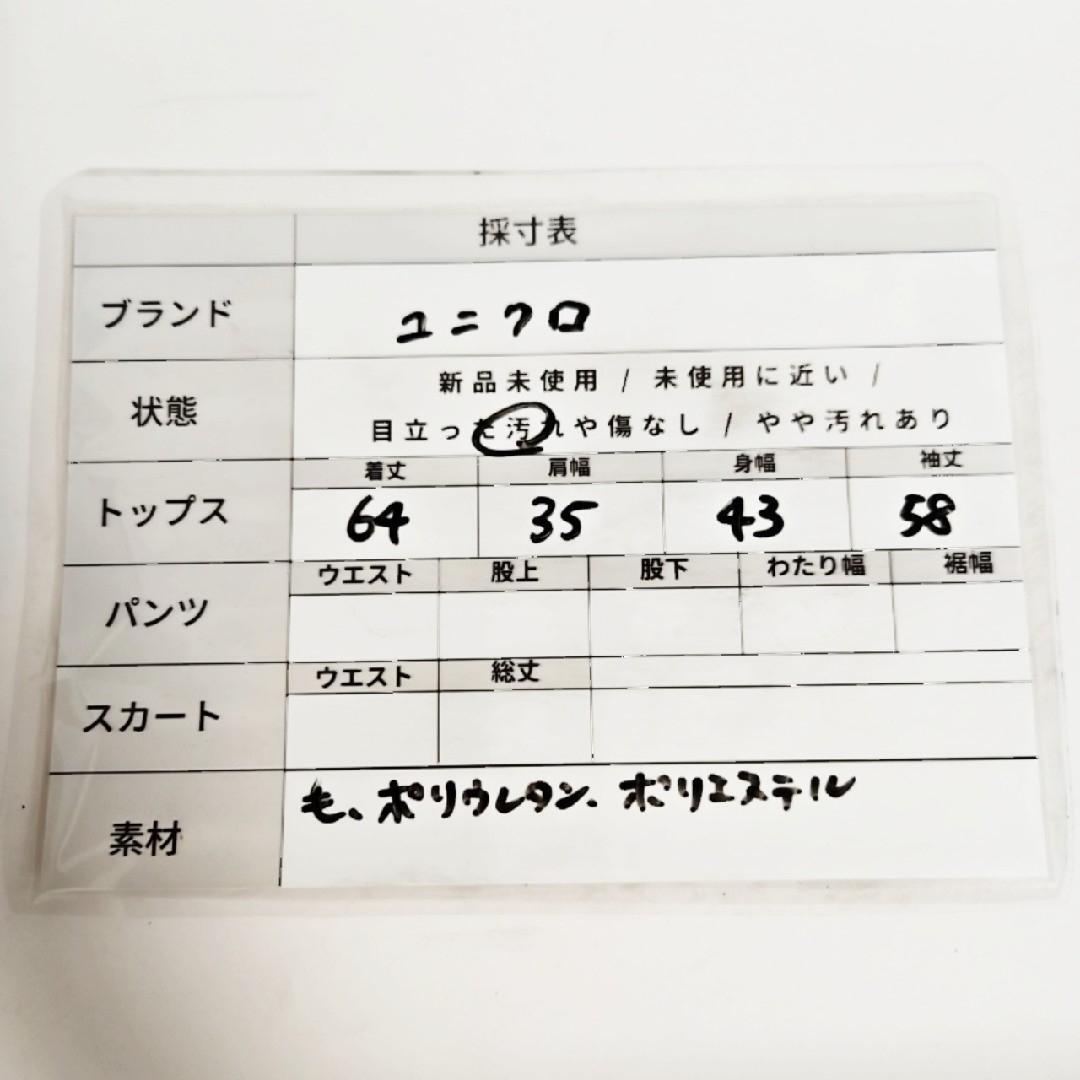 採寸表
ブランド ユニクロ
状態 新品未使用 / 未使用に近い /
目立った汚れや傷なし / やや汚れあり
着丈 肩幅 身幅 袖丈
トップス 64 35 43 58
ウエスト 股上 股下 わたり幅 裾幅
パンツ
ウエスト 総丈
スカート
素材 も、ポリウレタン、ポリエステル